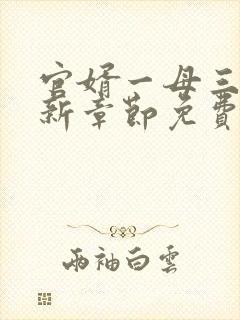 官婿一母三
新章節免費
兩袖白雲